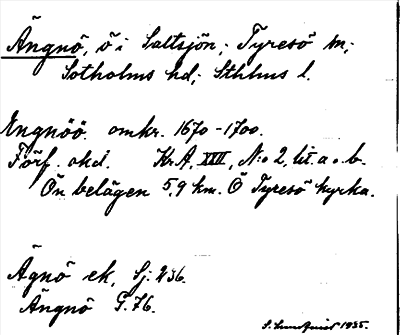 Ängnö, ö i Saltsjön; Tyresö sn,;
Sotholms hd,; Sthlms l.
Ängnöö. omkr. 1670-1700.
Förf. okd. Kr.A, XXII, N:o 2, lit. a o. b.
Ön belägen 5,9 km. Ö Tyresö kyrka.
Ägnö ek, Sj. 236.
Ängnö G. 76.
S. Lundquist 1935.